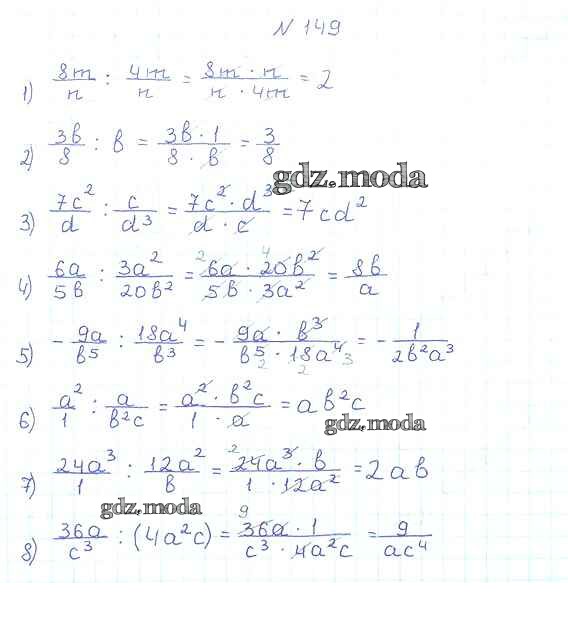 N 149
1) 8m/n : 4m/n = 8m · n / n · 4m = 2
2) 3b/8 : b = 3b · 1 / 8 · b = 3/8
gdz.moda
3) 7c²/d : c/d³ = 7c² · d³ / d · c = 7cd²
4) 6a/5b : 3a²/20b² = 2 6a · 4 20b² / 5b · 3a² = 8b/a
5) - 9a/b⁵ : 18a⁴/b³ = - 9a · b³ / b⁵ 2 · 18a⁴ 2 3 = - 1/2b²a³
6) a²/1 : a/b²c = a² · b²c / 1 · a = ab²c
gdz.moda
7) 24a³/1 : 12a²/b = 2 24a³ · b / 1 · 12a² = 2ab
gdz.moda
8) 36a/c³ : (4a²c) = 9 36a · 1 / c³ · 4a²c = 9/ac⁴